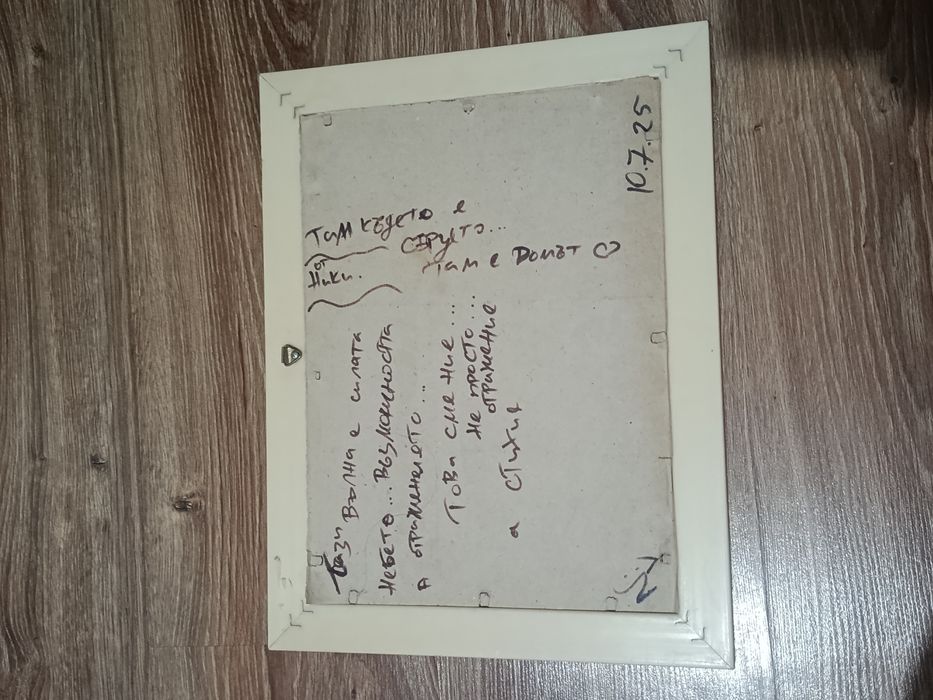 Тази
Вълна е силата
Небето... Възможността
А отражението...
Това сме ние...
Не просто...
отражение
а стихия
от
Ники.
Там където е
сърцето...
Там е Домът ♡
10.7.25